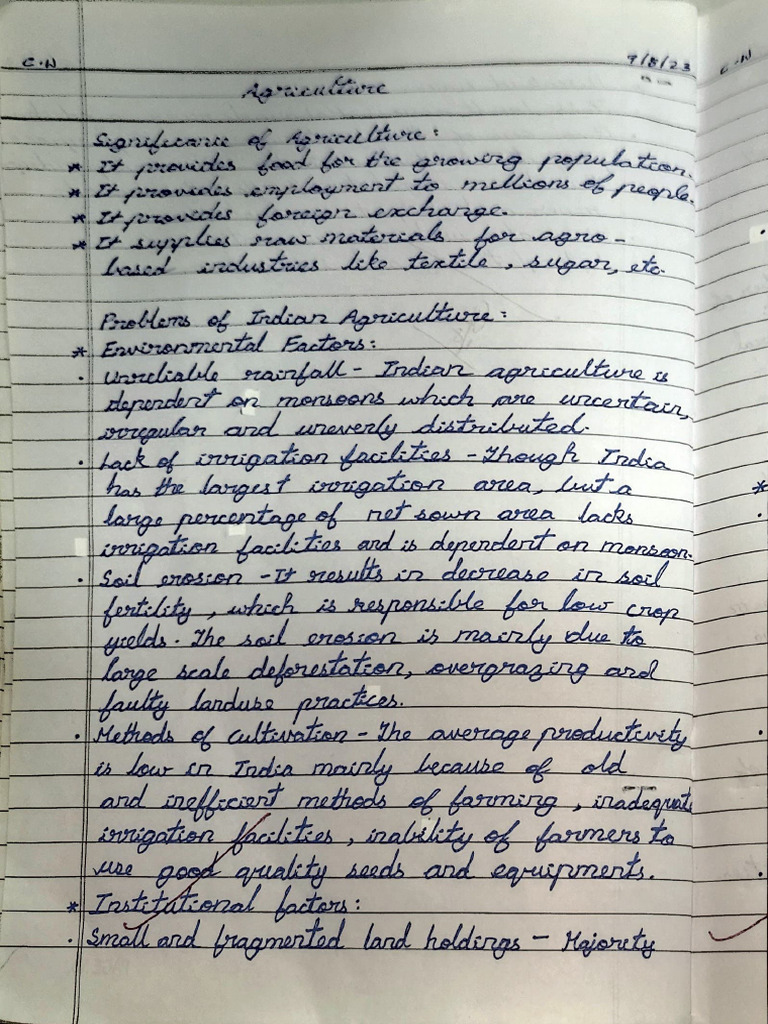 C.N 9/8/23
Agriculture
Significance of Agriculture:
* It provides food for the growing population.
* It provides employment to millions of people.
* It provides foreign exchange.
* It supplies raw materials for agro-
based industries like textile, sugar, etc.
Problems of Indian Agriculture:
* Environmental Factors:
· Unreliable rainfall - Indian agriculture is
dependent on monsoons which are uncertain,
irregular and unevenly distributed.
· Lack of irrigation facilities - Though India
has the largest irrigation area, but a
large percentage of net sown area lacks
irrigation facilities and is dependent on monsoon.
· Soil erosion - It results in decrease in soil
fertility, which is responsible for low crop
yields. The soil erosion is mainly due to
large scale deforestation, overgrazing and
faulty landuse practices.
· Methods of cultivation - The average productivity
is low in India mainly because of old
and inefficient methods of farming, inadequate
irrigation facilities, inability of farmers to
use good quality seeds and equipments.
* Institutional factors:
· Small and fragmented land holdings - Majority
C.N
*